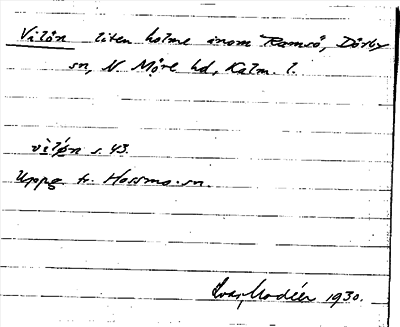 Vilön liten holme inom Ramsö, Dörby
sn, N. Möre hd, Kalm. l.
vilön s. 43.
Uppg. fr. Hossmo sn.
Ivar Modéer 1930.